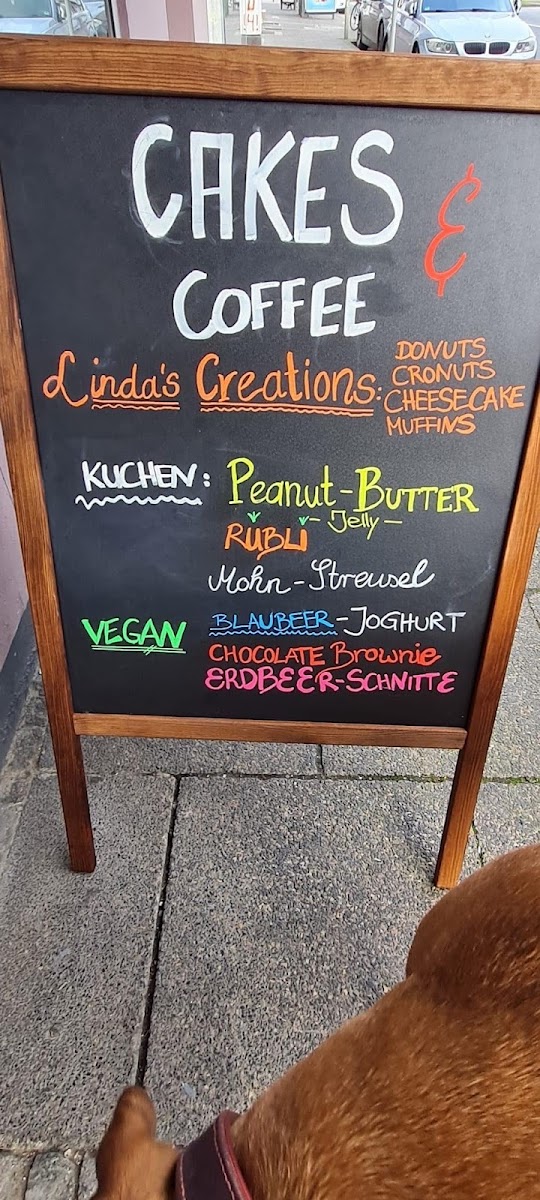 CAKES &
COFFEE
Linda's Creations:
DONUTS
CRONUTS
CHEESECAKE
MUFFINS
KUCHEN: Peanut-BUTTER
- Jelly -
RÜBLI
Mohn-Streusel
VEGAN BLAUBEER-JOGHURT
CHOCOLATE Brownie
ERDBEER-SCHNITTE